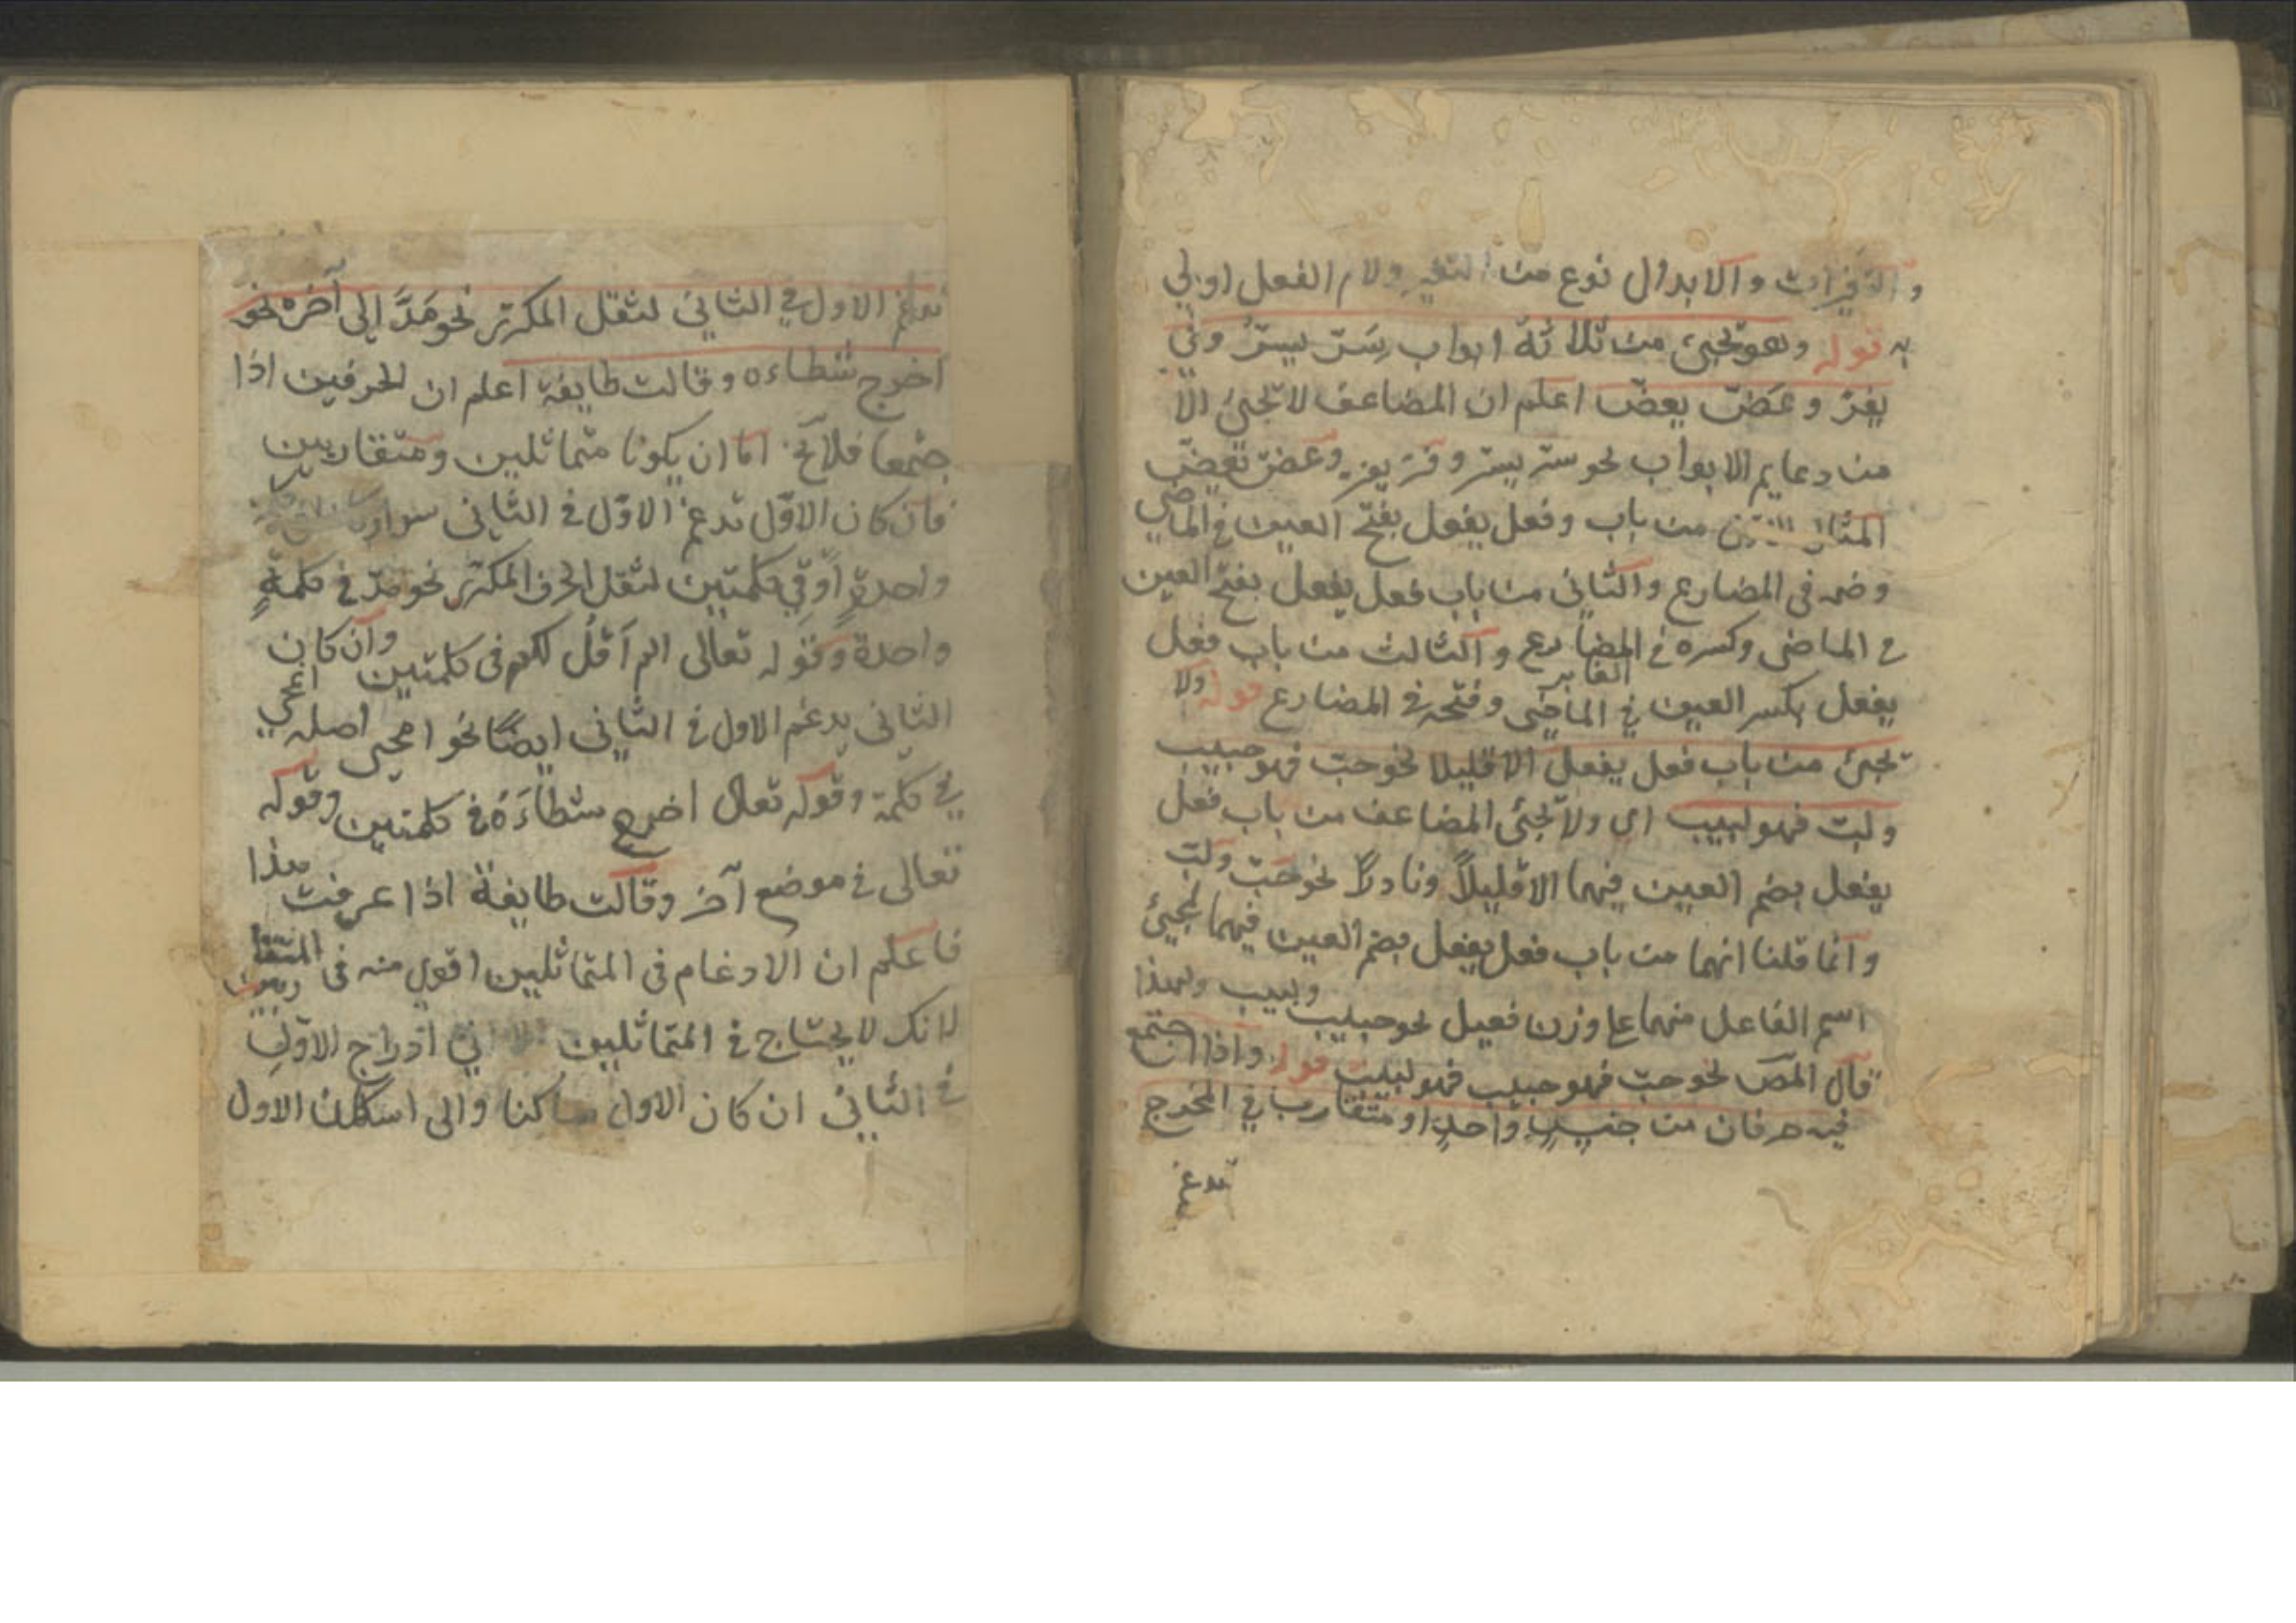 والتغيرات والابدال نوع من التغير ولام الفعل اولي
به قوله وهو تجيئ من ثلاثة ابواب سَرّ يسرّ وفرّ
يفرّ وعَضّ يعضّ اعلم ان المضاعف لا تجئ الّا
من دعايم الابواب نحو سرّ يسرّ وفرّ يفرّ وعَضّ يَعَضّ
من باب وفعل يفعل بفتح العين في الماضي
وضمه في المضارع والثاني من باب فعل يفعل بفتح العين
في الماضي وكسره في المضارع والثالث من باب فعل
يفعل بكسر العين في الماضي وفتحه في المضارع الغابر قوله ولا
تجئ من باب فعل يفعل الا قليلا نحو حبّ فهو حبيب
ولبّ فهو لبيب اي ولا تجئ المضاعف من باب فعل
يفعل بضم العين فيهما الا قليلاً ونادراً نحو حَبّ ولبّ
وانما قلنا انهما من باب فعل يفعل بضم العين فيهما لمجيئ
اسم الفاعل منهما على وزن فعيل نحو حبيب ولبيب ولهذا
قال المص نحو حبّ فهو حبيب فهو لبيب قوله واذا اجتمع
فيه حرفان من جنسٍ واحدٍ او متقارب في المخرج
تدغم
تدغم الاول في الثاني لثقل المكرّر نحو مَدَّ الى آخره نحو
اخرج شطاءه وقالت طايفة اعلم ان الحرفين اذا
جتمعا فلا يخ امّا ان يكونا متماثلين ومتقاربين
فان كان الاوّل تدغم الاوّل في الثاني سواء
واحدةٍ او في كلمتين لثقل الحرف المكرّر نحو مدّ في كلمةٍ
واحدة وقوله تعالى الم اَقُل لكم في كلمتين وان كان
الثاني يدغم الاول في الثاني ايضًا نحو امحى اصله انمحى
في كلمة وقوله تعالى اخرج شطاَءَهُ في كلمتين وقوله
تعالى في موضع آخر وقالت طايفة اذا عرفت هذا
فاعلم ان الادغام في المتماثلين اقوي منه في المتقا
لانك لا يحتاج في المتماثلين الا الي ادراج الاوّلِ
في الثاني ان كان الاول ساكنا والى اسكان الاول